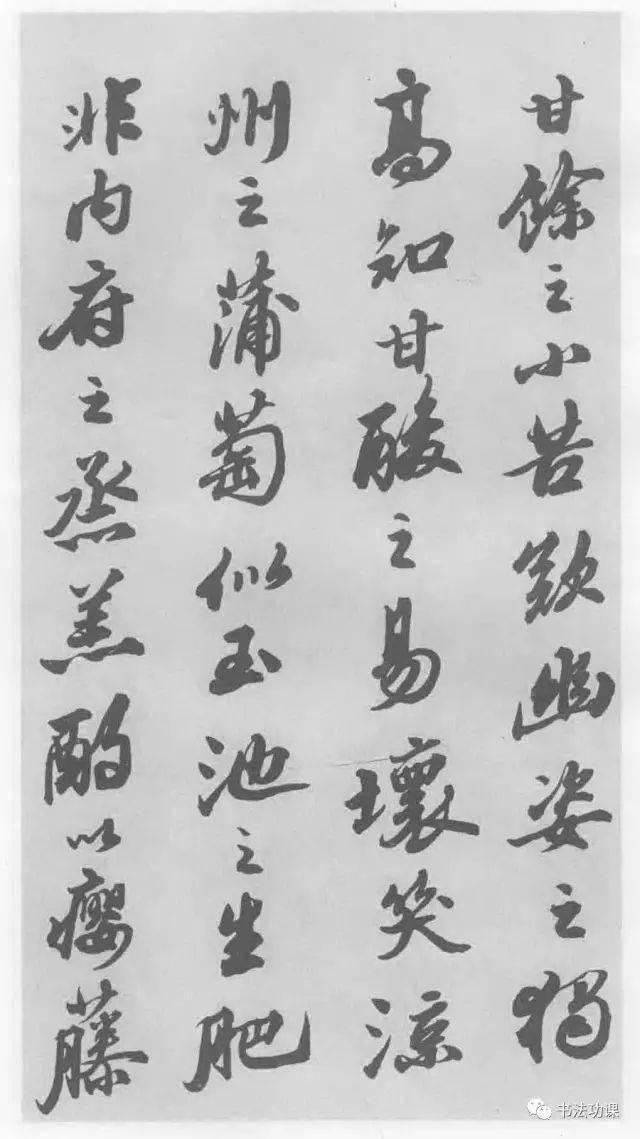 甘餘之小苦歎幽姿之獨
高知甘酸之易壞笑涼
州之蒲萄似玉池之生肥
非內府之烝羔酌以癭藤
书法功课